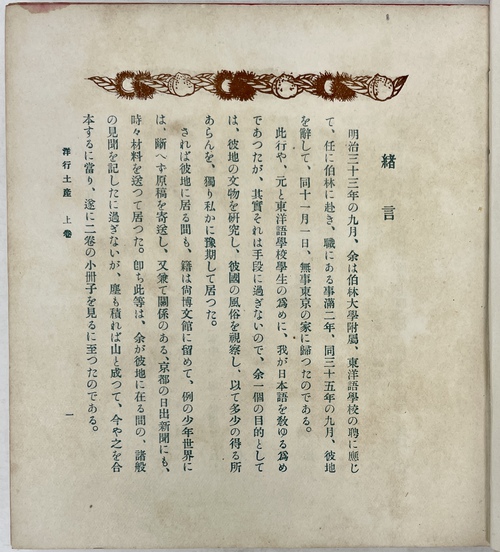 緒言
明治三十三年の九月、余は伯林大學附屬、東洋語學校の聘に應じ
て、任に伯林に赴き、職にある事滿二年、同三十五年の九月、彼地
を辭して、同十一月一日、無事東京の家に歸つたのである。
此行や、元と東洋語學校學生の爲めに、我が日本語を敎ゆる爲め
であつたが、其實それは手段に過ぎないので、余一個の目的として
は、彼地の文物を硏究し、彼國の風俗を視察し、以て多少の得る所
あらんを、獨り私かに豫期して居つた。
されば彼地に居る間も、籍は尙博文館に留めて、例の少年世界に
は、斷へず原稿を寄送し、又兼て關係のある、京都の日出新聞にも、
時々材料を送つて居つた。卽ち此等は、余が彼地に在る間の、諸般
の見聞を記したに過ぎないが、塵も積れば山と成つて、今や之を合
本するに當り、遂に二卷の小冊子を見るに至つたのである。
洋行土產 上卷
一